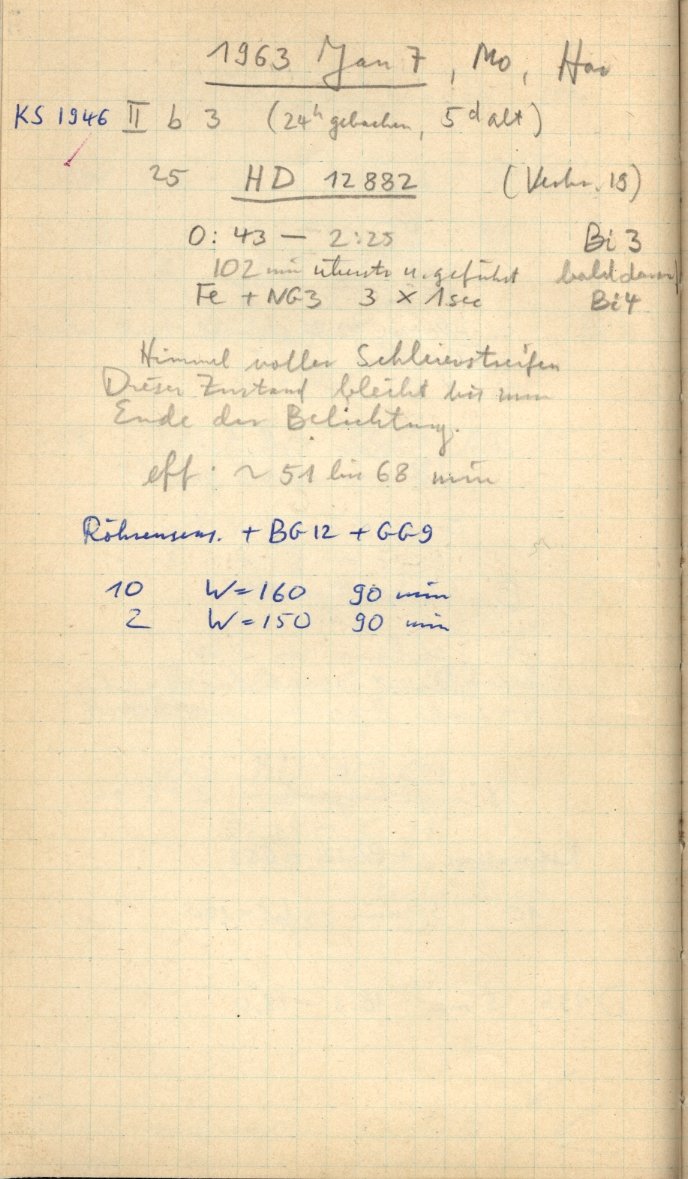 1963 Jan 7, Mo, Hau
KS 1946 II b 3 (24h gebacken, 5d alt)
25 HD 12882 (Verbr. 18)
0:43 – 2:25 Bi 3
102 min übers u. geführt bald dann
Fe + NG3 3 × 1sec Bi 4
Himmel voller Schleierstreifen
Dieser Zustand bleibt bis zum
Ende der Belichtung.
eff. ~ 51 bis 68 min
Röhrensens. + BG12 + GG9
10 W=160 90 min
2 W=150 90 min